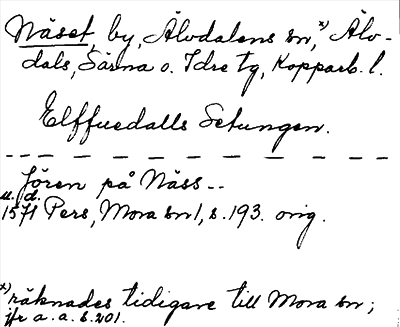 Näset, by, Älvdalens sn,*) Älv-
dals, Särna o. Idre tg, Kopparb. l.
Elffuedalls Setungen.
Jören på Näss --
u. d.
1571 Pers, Mora sn 1, s. 193. orig.
*) räknades tidigare till Mora sn;
jfr a. a. s. 201.